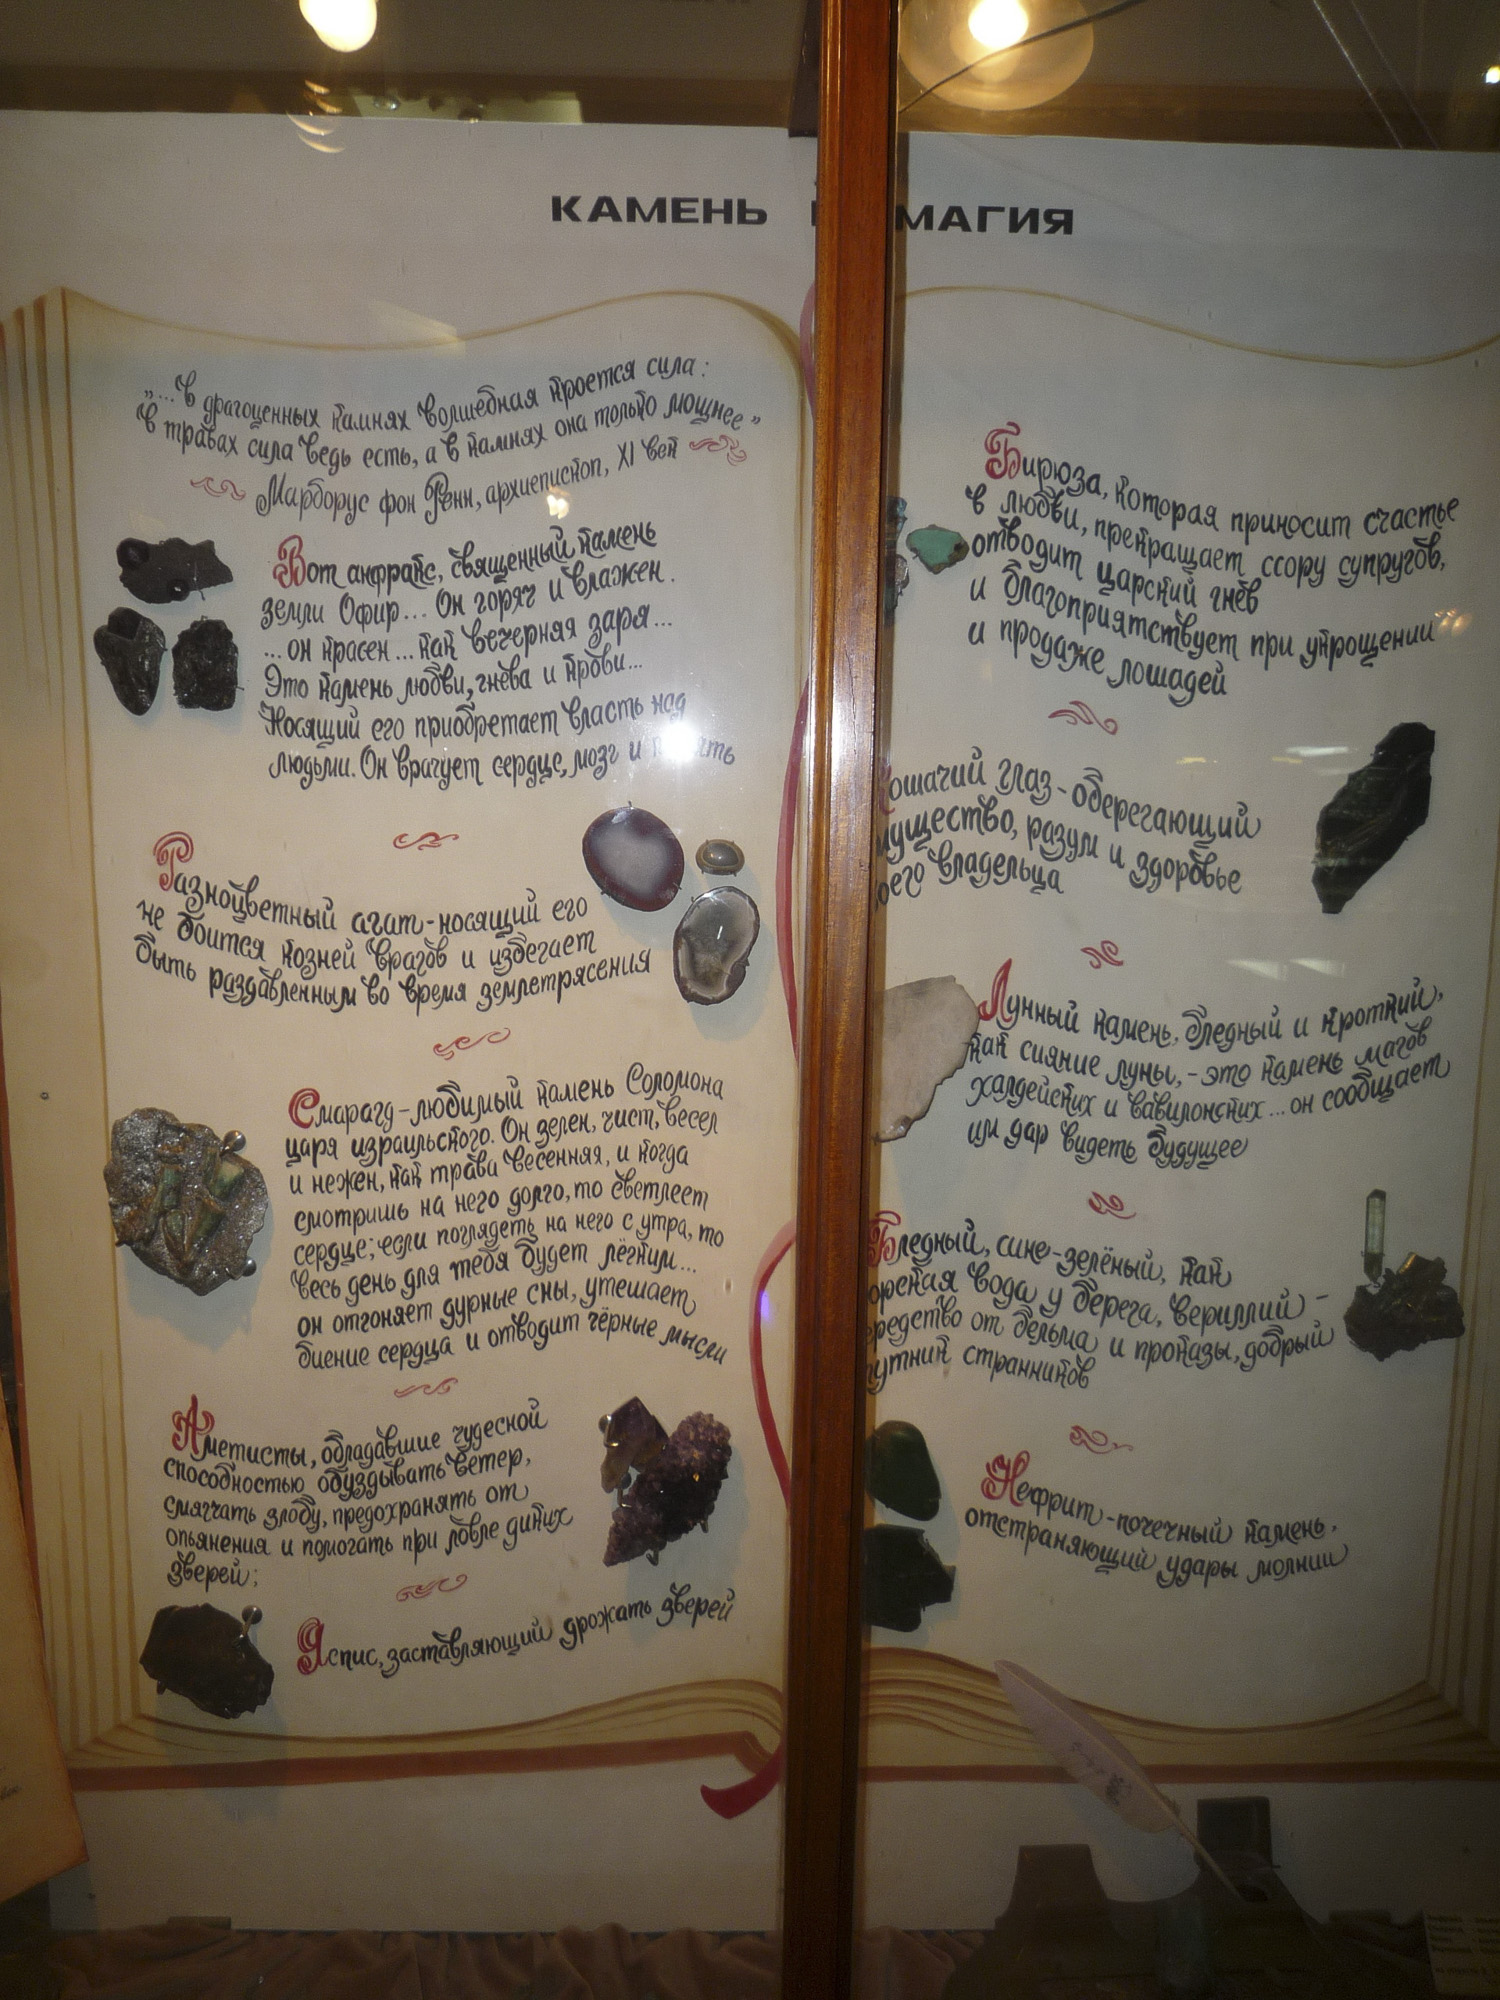 КАМЕНЬ МАГИЯ
„...В драгоценных камнях волшебная кроется сила:
в травах сила ведь есть, а в камнях она только мощнее”
Марборус фон Ренн, архиепископ, XI век
Вот анфракс, священный камень
земли Офир... Он горяч и влажен.
...он красен... как вечерняя заря...
Это камень любви, гнева и крови...
Носящий его приобретает власть над
людьми. Он врачует сердце, мозг и
Разноцветный агат-носящий его
не боится козней врагов и избегает
быть раздавленным во время землетрясения
Смарагд-любимый камень Соломона
царя израильского. Он зелен, чист, весел
и нежен, как трава весенняя, и когда
смотришь на него долго, то светлеет
сердце; если поглядеть на него с утра, то
весь день для тебя будет лёгким...
он отгоняет дурные сны, утешает
биение сердца и отводит чёрные мысли
Аметисты, обладавшие чудесной
способностью обуздывать ветер,
смягчать злобу, предохранять от
опьянения и помогать при ловле диких
зверей;
Яспис, заставляющий дрожать зверей
Бирюза, которая приносит счастье
в любви, прекращает ссору супругов,
отводит царский гнев
и благоприятствует при укрощении
и продаже лошадей
Кошачий глаз-оберегающий
имущество, разум и здоровье
своего владельца
Лунный камень, бледный и кроткий,
как сияние луны,-это камень магов
халдейских и вавилонских... он сообщает
им дар видеть будущее
Бледный, сине-зелёный, как
морская вода у берега, вериллий-
средство от бельма и проказы, добрый
путник странников
Нефрит-почечный камень,
отстраняющий удары молнии